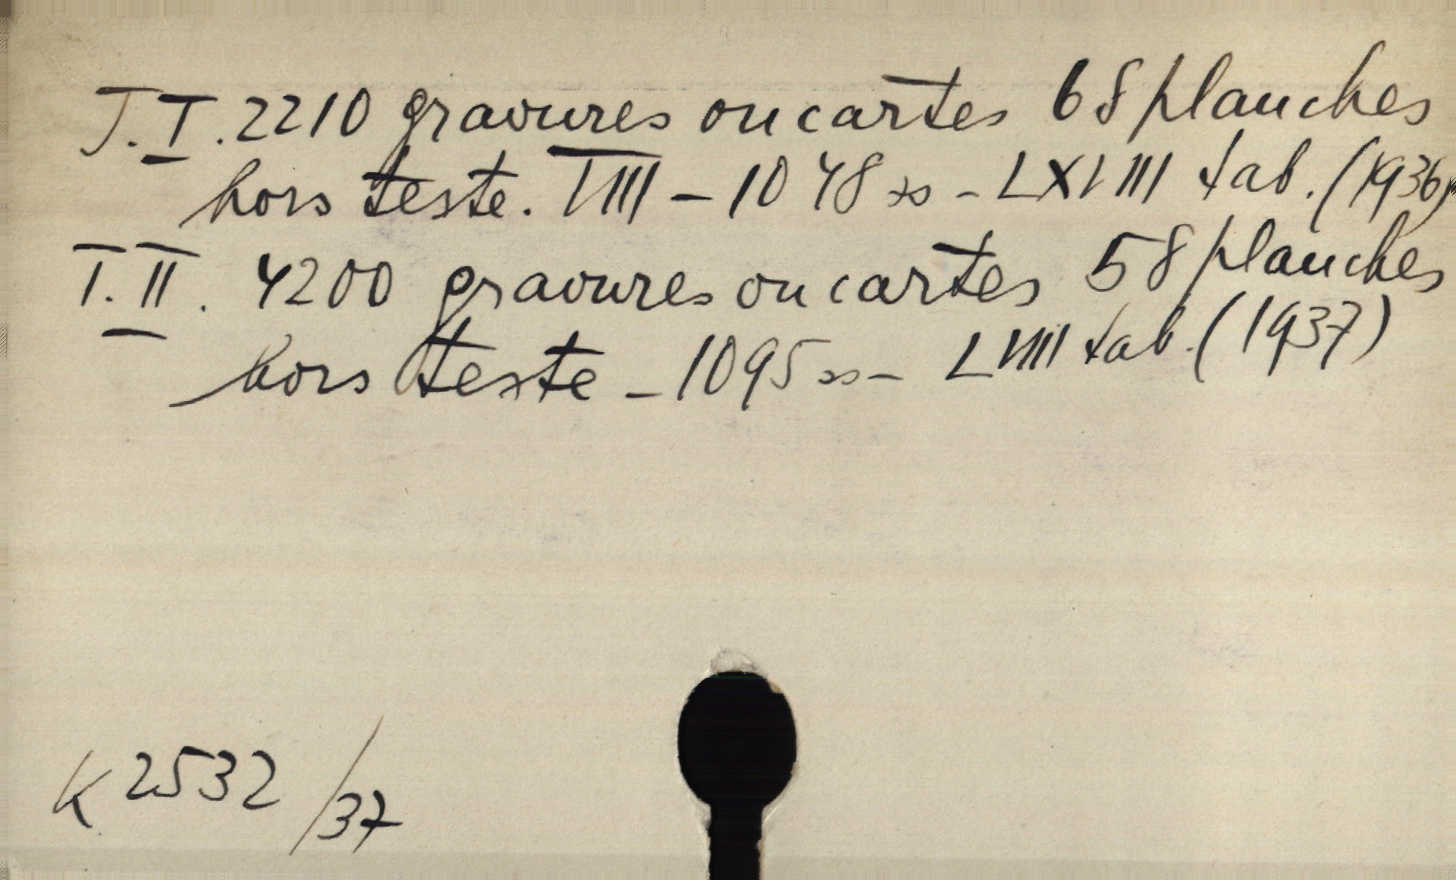 T.I. 2210 gravures ou cartes 68 planches
hors texte. VIII – 1048 - LXVIII tab. (1936)
T. II. 4200 gravures ou cartes 58 planches
hors texte – 1095 – LVIII tab. (1937)
K 2532/37